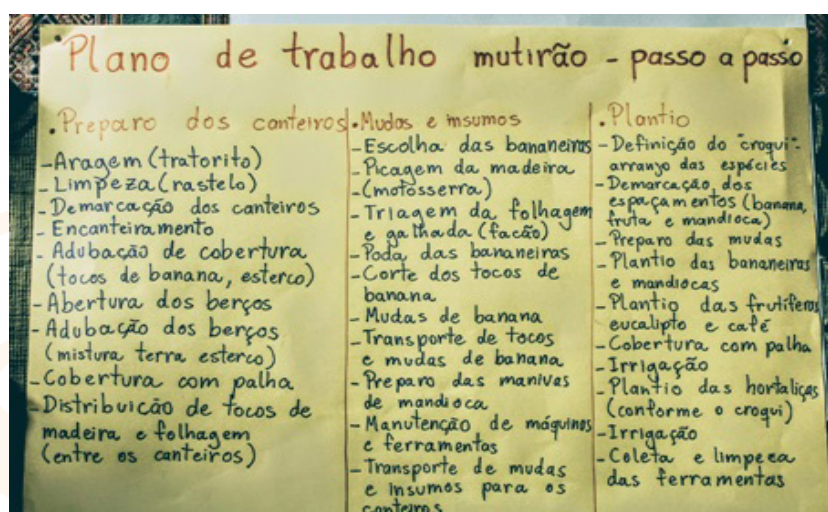 Plano de trabalho mutirão - passo a passo
. Preparo dos canteiros
- Aragem (tratorito)
- Limpeza (rastelo)
- Demarcação dos canteiros
- Encanteiramento
- Adubação de cobertura
(tocos de banana, esterco)
- Abertura dos berços
- Adubação dos berços
(mistura terra esterco)
- Cobertura com palha
- Distribuicão de tocos de
madeira e folhagem
(entre os canteiros)
. Mudas e insumos
- Escolha das bananeiras
- Picagem da madeira
- (motosserra)
- Triagem da folhagem
e galhada (facão)
- Poda das bananeiras
- Corte dos tocos de
banana
- Mudas de banana
- Transporte de tocos
e mudas de banana
- Preparo das manivas
de mandioca
- Manutenção de máquinas
e ferramentas
- Transporte de mudas
e insumos para os
canteiros
. Plantio
- Definição do "croqui"-
arranjo das espécies
- Demarcação dos
espaçamentos (banana,
fruta e mandioca)
- Preparo das mudas
- Plantio das bananeiras
e mandiocas
- Plantio das frutíferas
eucalipto e café
- Cobertura com palha
- Irrigação
- Plantio das hortaliças
(conforme o croqui)
- Irrigação
- Coleta e limpeea
das ferramentas